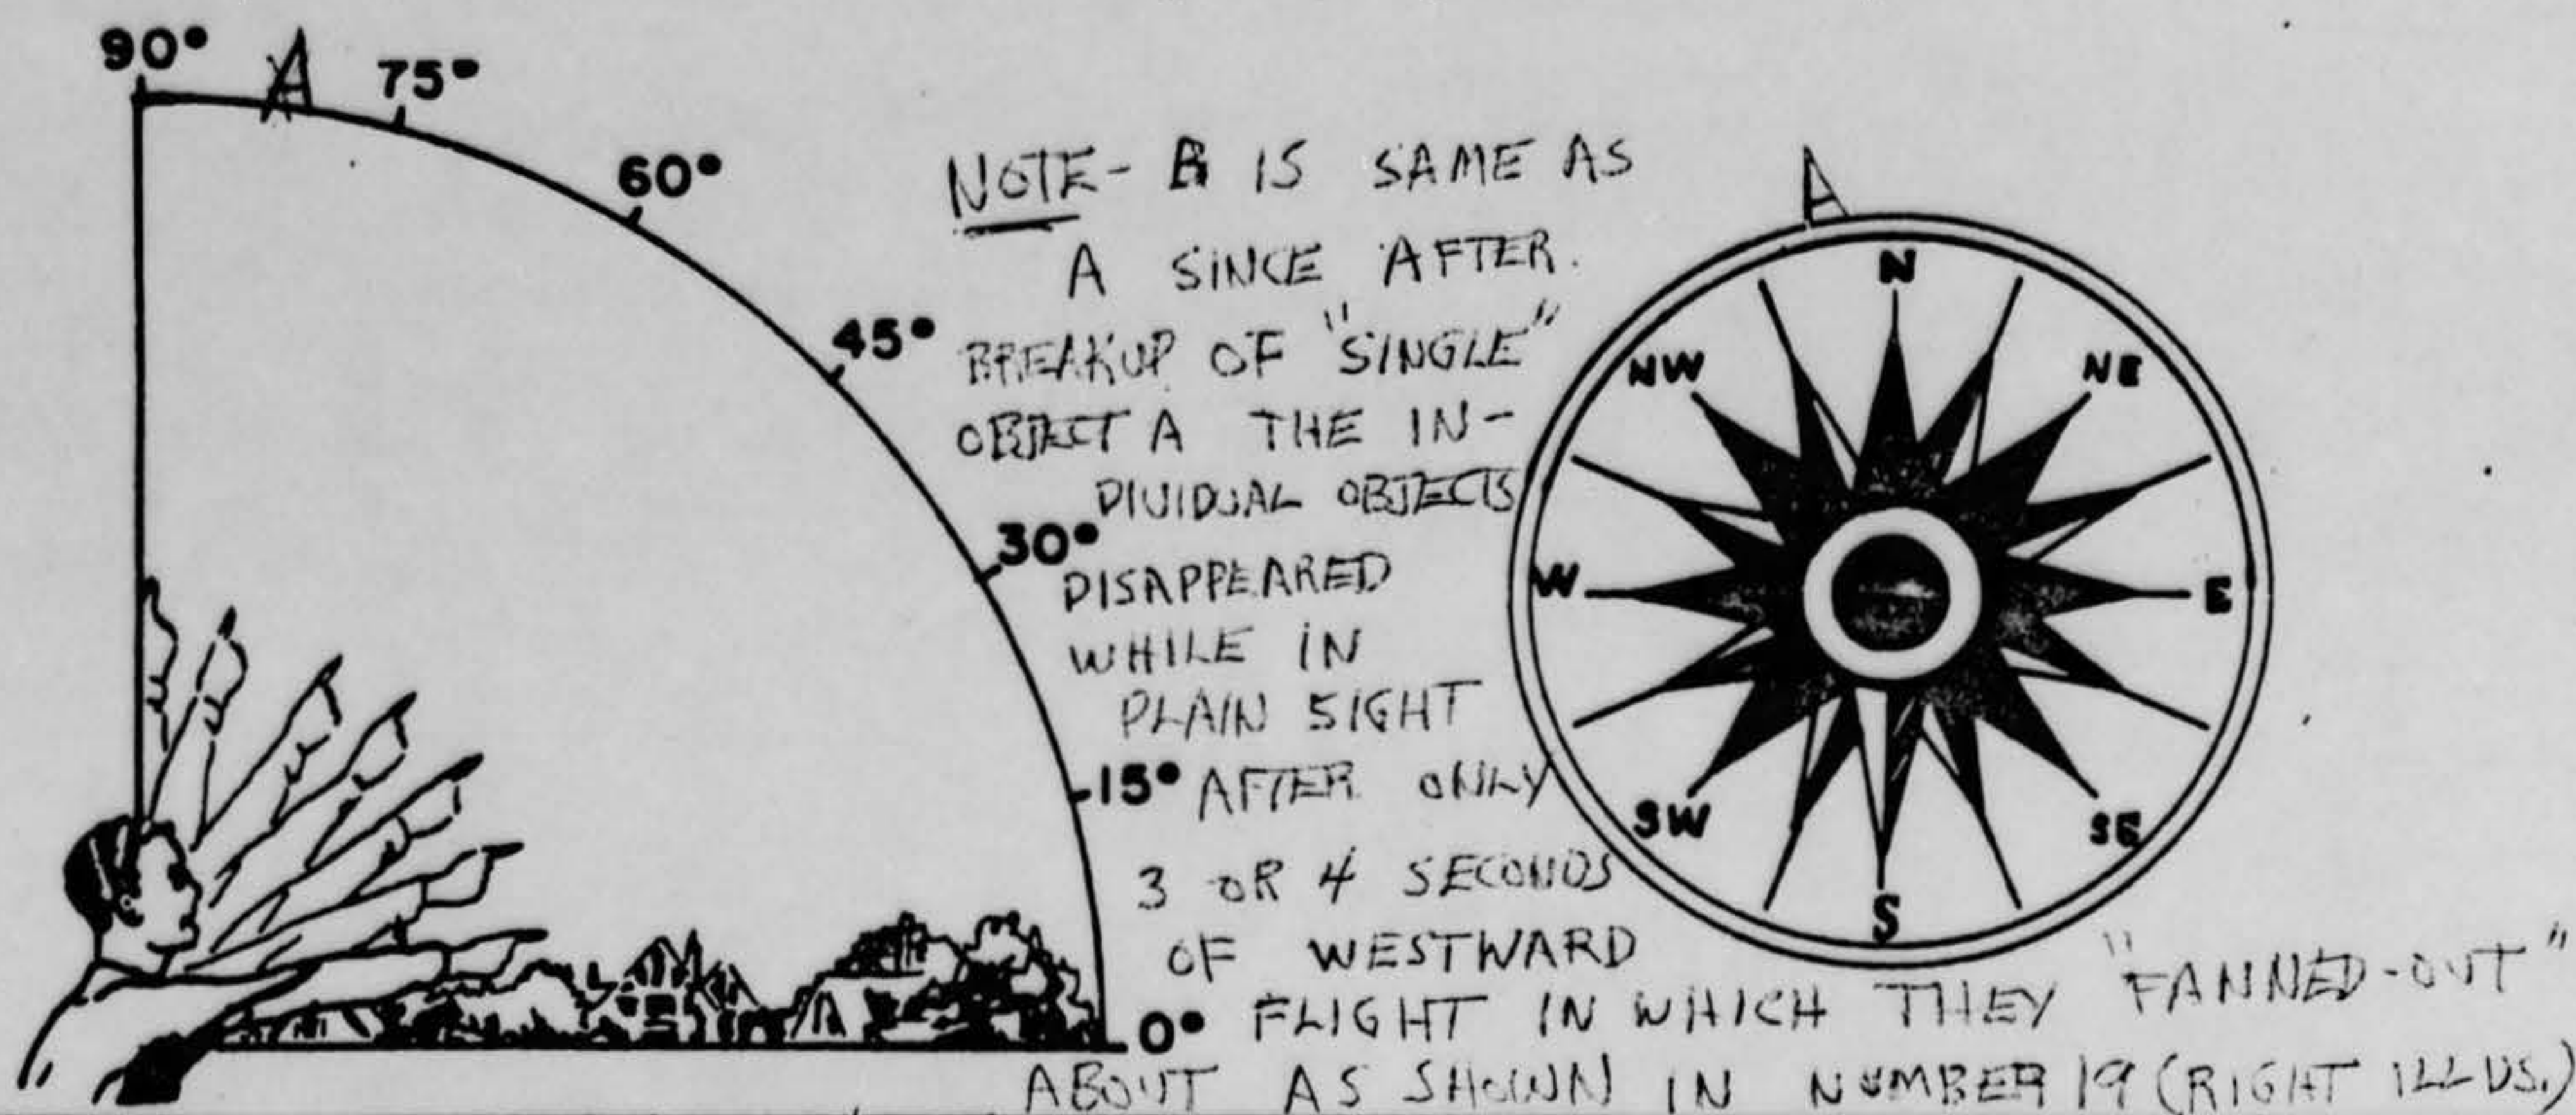 90° A 75°
60°
45°
30°
15°
0°
NOTE- B IS SAME AS
A SINCE AFTER.
BREAKUP OF "SINGLE"
OBJECT A THE IN-
DIVIDUAL OBJECTS
DISAPPEARED
WHILE IN
PLAIN SIGHT
AFTER ONLY
3 OR 4 SECONDS
OF WESTWARD
FLIGHT IN WHICH THEY "FANNED-OUT"
ABOUT AS SHOWN IN NUMBER 19 (RIGHT ILLUS.)
A
N
NW NE
W E
SW SE
S